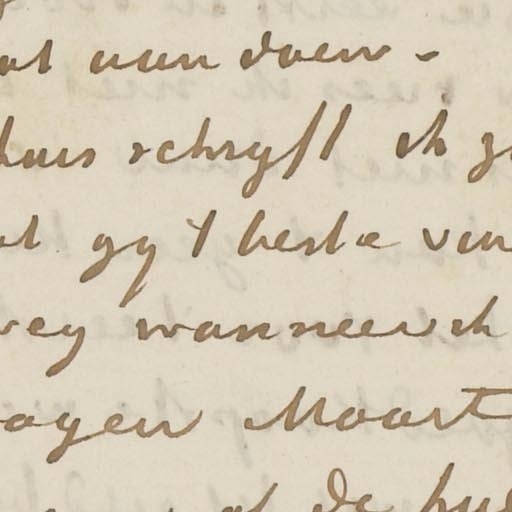 at aan doen -
huis schryft ik
at gy t beste van
wey wanneer ik
agen Maart
of de